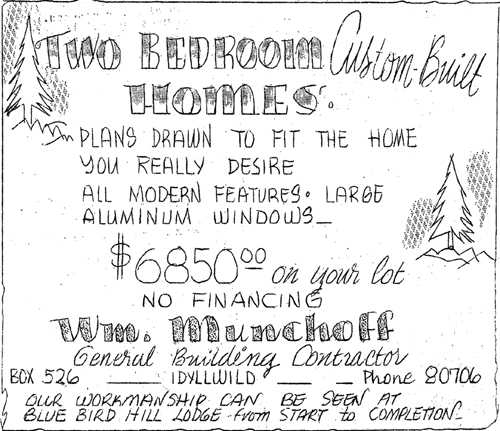 TWO BEDROOM Custom-Built
HOMES.
PLANS DRAWN TO FIT THE HOME
YOU REALLY DESIRE
ALL MODERN FEATURES. LARGE
ALUMINUM WINDOWS_
$6850⁰⁰ on your lot
NO FINANCING
Wm. Munchoff
General Building Contractor
BOX 526 ____ IDYLLWILD ___ _ Phone 80706
OUR WORKMANSHIP CAN BE SEEN AT
BLUE BIRD HILL LODGE - From START to COMPLETION_